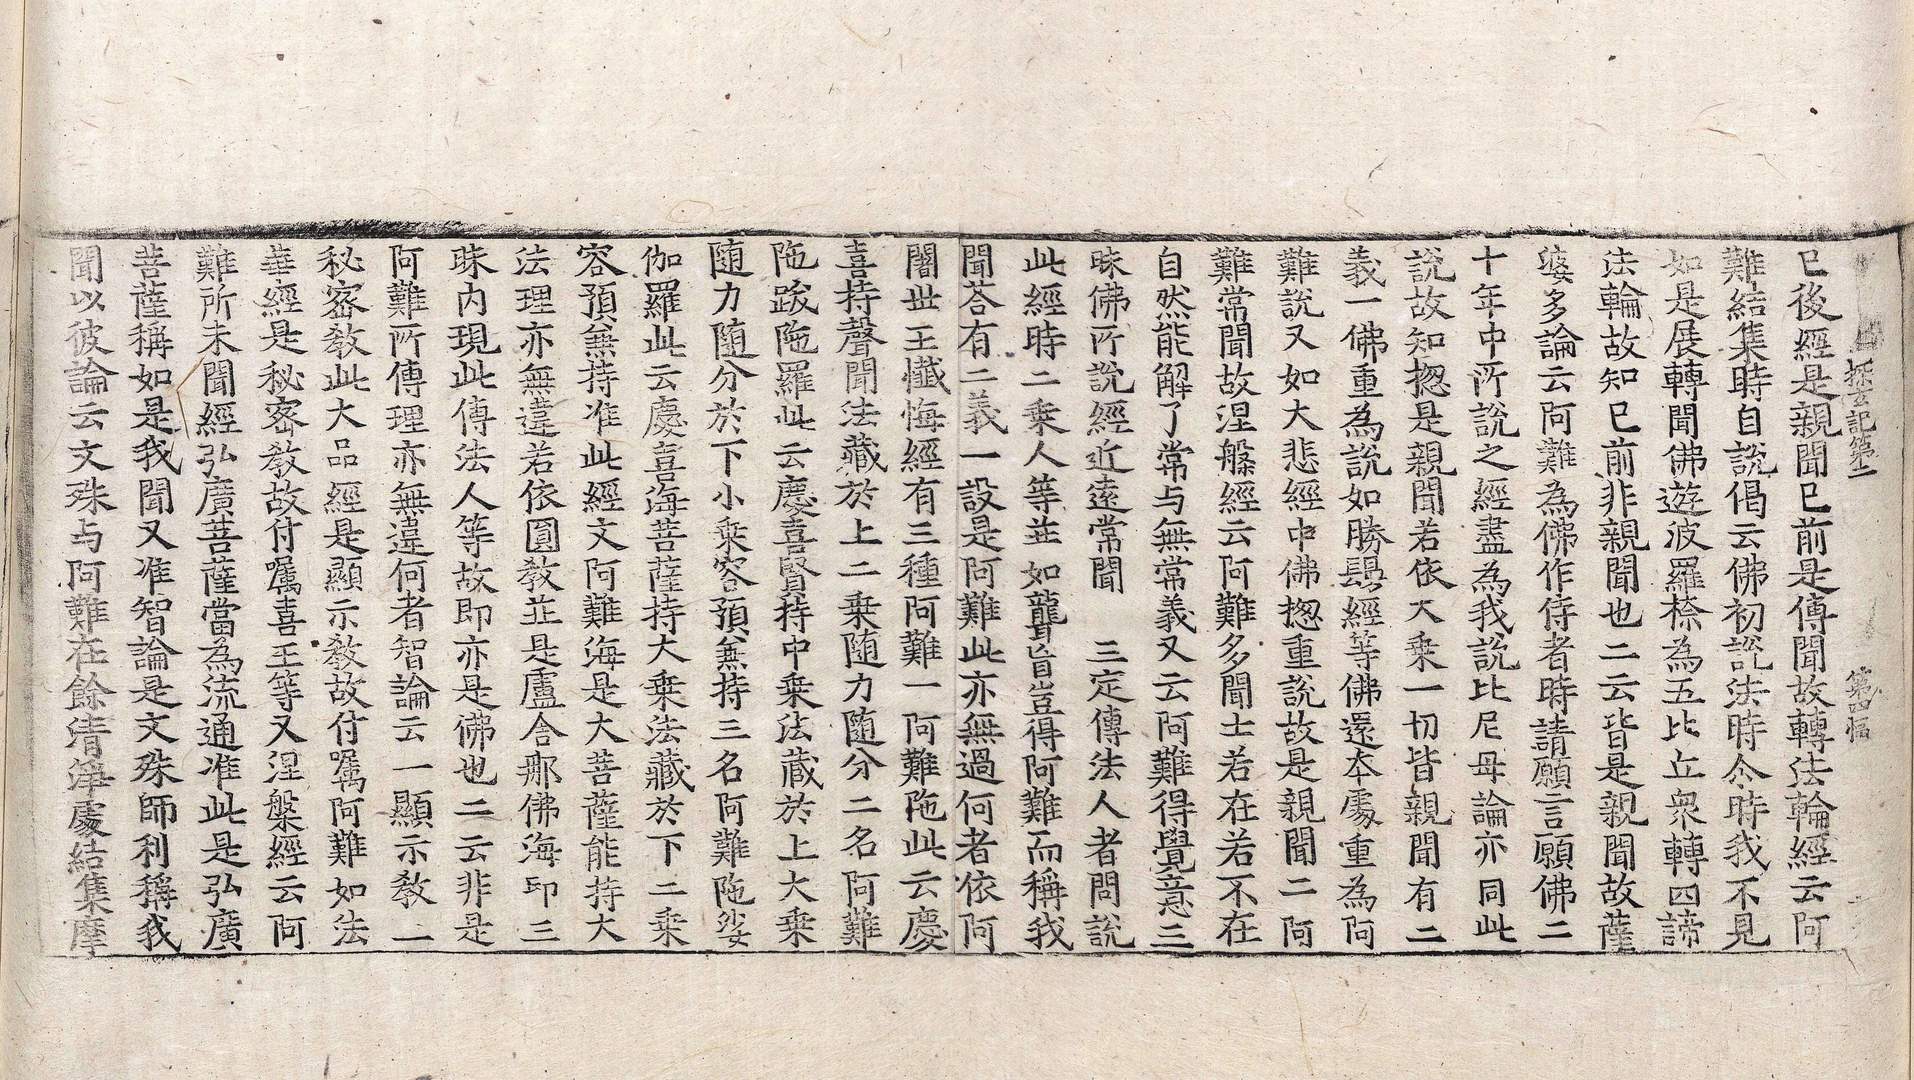 探玄記第二　第四幅
已後經是親聞已前是傳聞故轉法輪經云阿
難結集時自說偈云佛初說法時尒時我不見
如是展轉聞佛遊波羅㮈為五比丘衆轉四諦
法輪故知已前非親聞也二云皆是親聞故薩
婆多論云阿難為佛作侍者時請願言願佛二
十年中所說之經盡為我說比尼母論亦同此
說故知揔是親聞若依大乘一切皆親聞有二
義一佛重為說如勝鬘經等佛還本處重為阿
難說又如大悲經中佛揔重說故是親聞二阿
難常聞故涅槃經云阿難多聞士若在若不在
自然能解了常与無常義又云阿難得覺意三
昧佛所說經近遠常聞　三定傳法人者問說
此經時二乘人等並如聾盲豈得阿難而稱我
聞荅有二義一設是阿難此亦無過何者依阿
闍世王懺悔經有三種阿難一阿難陁此云慶
喜持聲聞法藏於上二乘隨力隨分二名阿難
陁跋陁羅此云慶喜賢持中乘法藏於上大乘
隨力隨分於下小乘容預兼持三名阿難陁娑
伽羅此云慶喜海菩薩持大乘法藏於下二乘
容預兼持准此經文阿難海是大菩薩能持大
法理亦無違若依圓教並是盧舍那佛海印三
昧內現此傳法人等故即亦是佛也二云非是
阿難所傳理亦無違何者智論云一顯示教一
秘密教此大品經是顯示教故付囑阿難如法
華經是秘密教故付囑喜王等又涅槃經云阿
難所未聞經弘廣菩薩當為流通准此是弘廣
菩薩稱如是我聞又准智論是文殊師利稱我
聞以彼論云文殊与阿難在餘清淨處結集摩